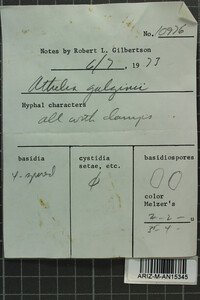 No. 10926
Notes by Robert L. Gilbertson
6/7, 1973
Athelia galzinii
Hyphal characters
all with clamps
basidia
cystidia
setae, etc.
basidiospores
4-spored
φ
color
Melzer's
ARIZ-M-AN15345